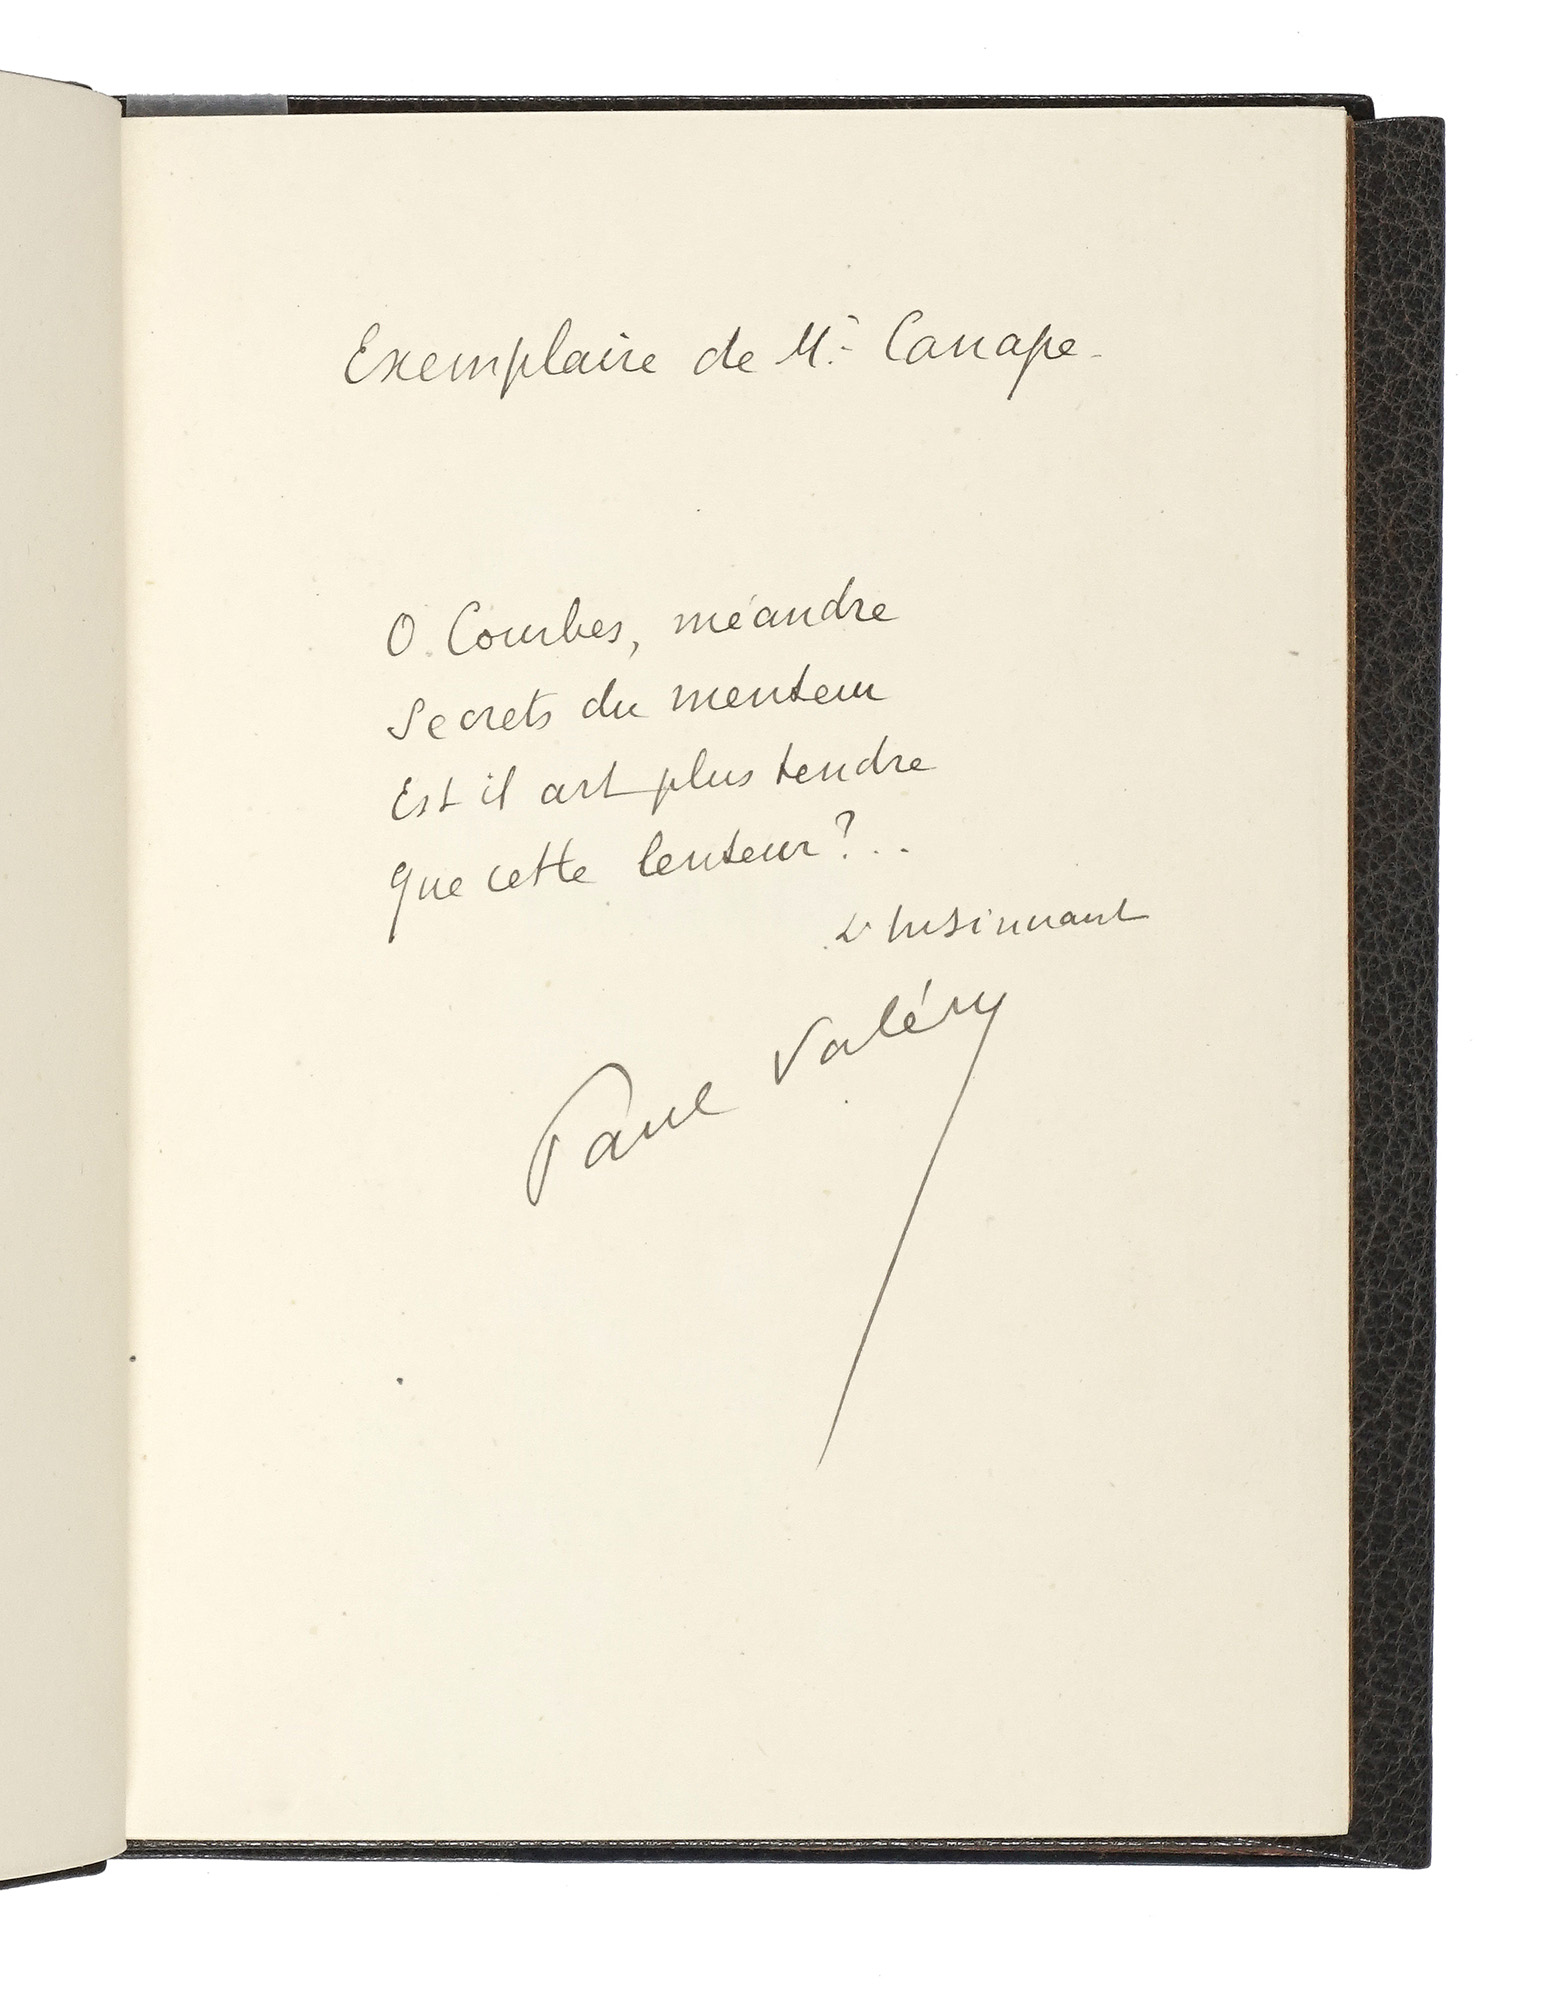 Exemplaire de Mr Canape.
O Courbes, méandre
Secrets du menteur
Est il art plus tendre
Que cette lenteur?..
L'Insinuant
Paul Valéry